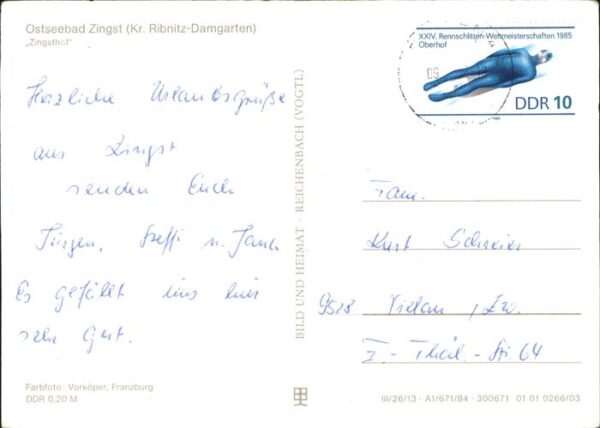 Ostseebad Zingst (Kr. Ribnitz-Damgarten)
„Zingsthof“
Herzliche Urlaubsgrüße
aus Zingst
senden Euch
Jürgen, Steffi u.
Es gefällt uns hier
sehr gut.
Farbfoto: Vorköper, Franzburg
DDR 0,20 M
BILD UND HEIMAT · REICHENBACH (VOGTL)
XXIV. Rennschlitten-Weltmeisterschaften 1985
Oberhof
DDR 10
Fam.
Kurt Schreier
Zw.
Str. 64
III/26/13 · A1/671/84 · 300671 01 01 0266/03